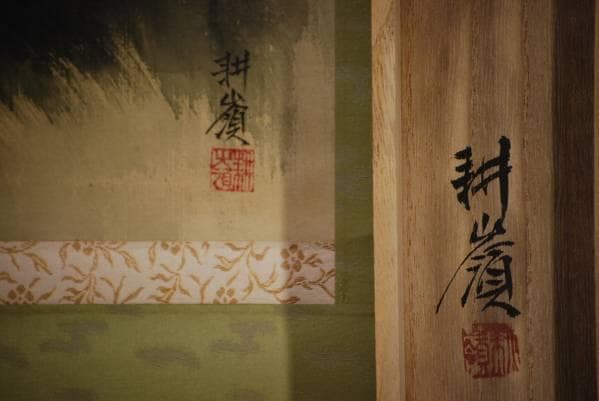 耕嶺
耕嶺